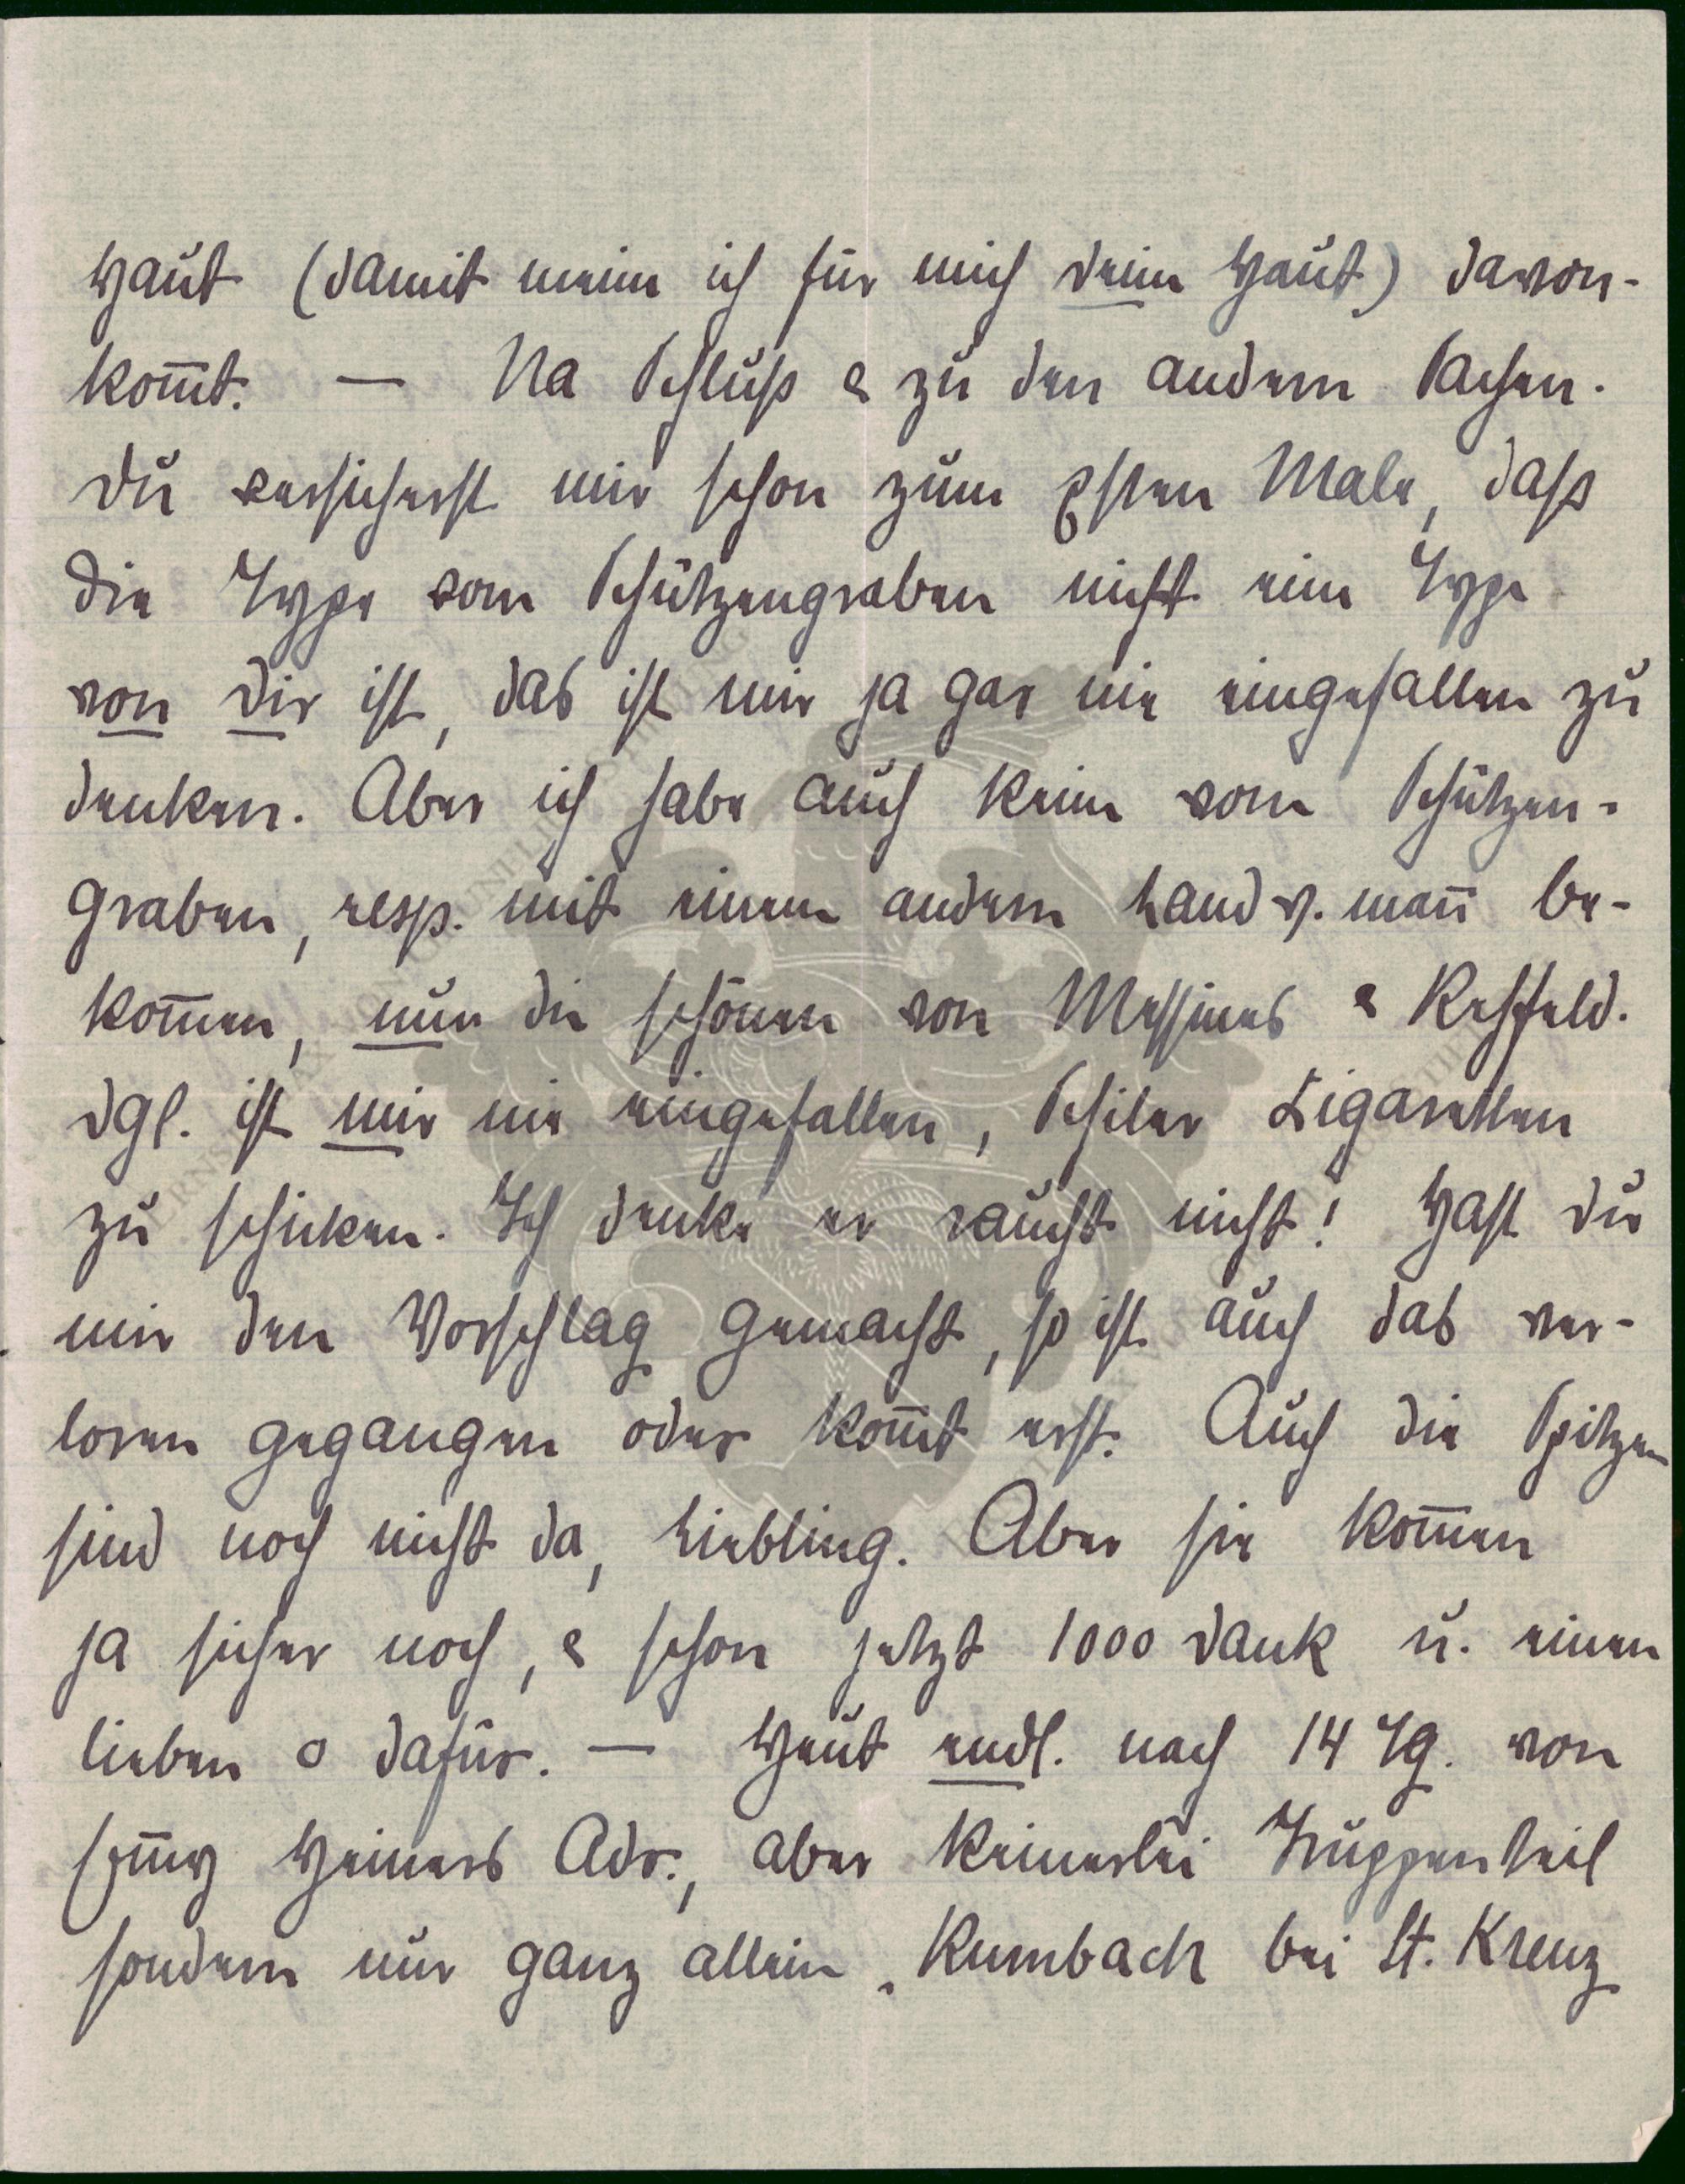 Haut (damit mein ich für mich deine Haut) davon-
kom̅t. — Na Schluß & zu den andern Sachen.
Du versicherst mir schon zum xsten Male, daß
die Type vom Schützengraben nicht eine Type
von Dir ist, das ist mir ja gar nie eingefallen zu
denken. Aber ich habe auch keine vom Schützen-
graben, resp. mit einem andern Landw.man̅ be-
kom̅en, nur die schönen von Messines & Rehfeld.
dgl. ist mir nie eingefallen, Schiler Zigaretten
zu schicken. Ich denke er raucht nicht! Hast du
mir den Vorschlag gemacht, so ist auch das ver-
loren gegangen oder kom̅t erst. Auch die Spitzen
sind noch nicht da, Liebling. Aber sie kom̅en
ja sicher noch, & schon jetzt 1000 Dank u. einen
lieben o dafür. — Heut endl. nach 14 Tg. von
Heiners Adr., aber keinerlei Truppenteil
sondern nur ganz allein „Rumbach bei St. Kreuz